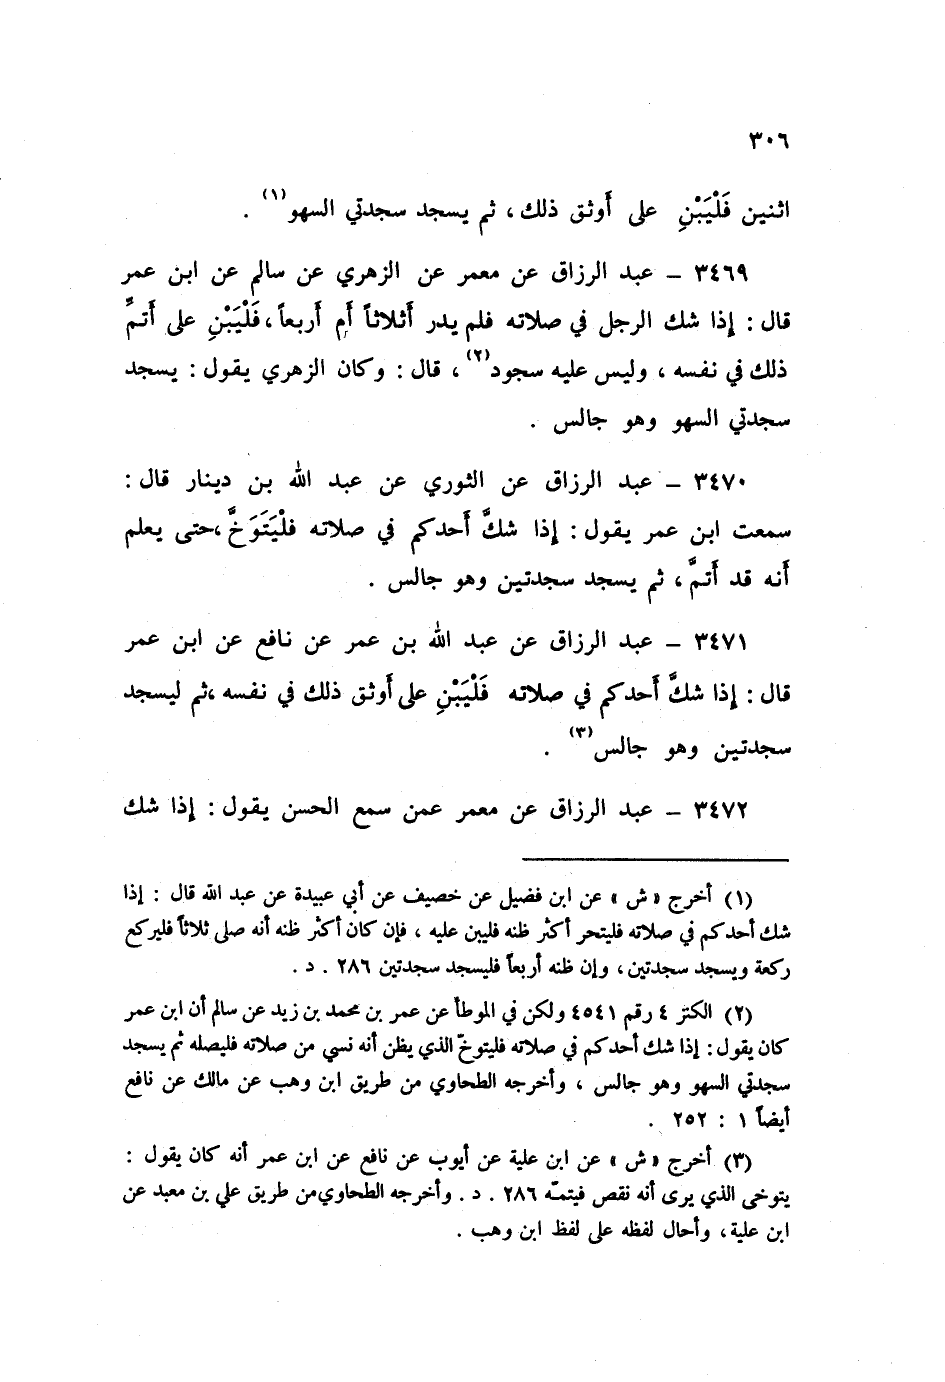 ٣٠٦
اثنين فَلْيَبْنِ على أَوثق ذلك، ثم يسجد سجدتي السهو(١) .
٣٤٦٩ – عبد الرزاق عن معمر عن الزهري عن سالم عن ابن عمر
قال : إذا شك الرجل في صلاته فلم يدر أثلاثاً أم أربعاً، فَلْيَبْنِ على أَتمِّ
ذلك في نفسه ، وليس عليه سجود(٢) ، قال : وكان الزهري يقول : يسجد
سجدتي السهو وهو جالس .
٣٤٧٠ – عبد الرزاق عن الثوري عن عبد الله بن دينار قال :
سمعت ابن عمر يقول : إذا شكَّ أَحدكم في صلاته فلْيَتَوَخَّ ،حتى يعلم
أَنه قد أَتمَّ ، ثم يسجد سجدتين وهو جالس .
٣٤٧١ – عبد الرزاق عن عبد الله بن عمر عن نافع عن ابن عمر
قال : إذا شكَّ أَحدكم في صلاته فَلْيَبْنِ على أَوثق ذلك في نفسه ،ثم ليسجد
سجدتين وهو جالس(٣) .
٣٤٧٢ – عبد الرزاق عن معمر عمن سمع الحسن يقول : إذا شك
(١) أخرج «ش» عن ابن فضيل عن خصيف عن أبي عبيدة عن عبد الله قال : إذا
شك أحدكم في صلاته فليتحر أكثر ظنه فليبن عليه ، فإن كان أكثر ظنه أنه صلى ثلاثاً فليركع
ركعة ويسجد سجدتين، وإن ظنه أربعاً فليسجد سجدتين ٢٨٦ . د .
(٢) الكنز ٤ رقم ٤٥٤١ ولكن في الموطأ عن عمر بن محمد بن زيد عن سالم أن ابن عمر
كان يقول : إذا شك أحدكم في صلاته فليتوخّ الذي يظن أنه نسي من صلاته فليصله ثم يسجد
سجدتي السهو وهو جالس ، وأخرجه الطحاوي من طريق ابن وهب عن مالك عن نافع
أيضاً ١ : ٢٥٢ .
(٣) أخرج «ش» عن ابن علية عن أيوب عن نافع عن ابن عمر أنه كان يقول :
يتوخى الذي يرى أنه نقص فيتمّه ٢٨٦ . د . وأخرجه الطحاوي من طريق علي بن معبد عن
ابن علية، وأحال لفظه على لفظ ابن وهب .